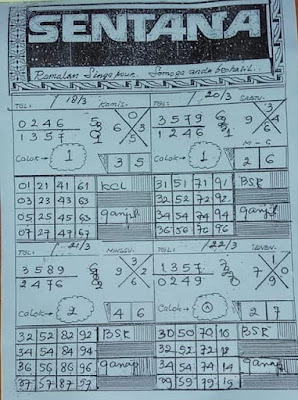 SENTANA
Ramalan Singapour. Semoga anda berhasil..
TGL: 18/3 Kamis.
0246
1357
6 0 3
5
Calok → 1 35
01 21 41 61 KCL
03 23 43 63
05 25 45 65 ganjil
07 27 47 67
TGL: 20/3 Sabtu.
3579
1246
9 3 4
6
M - G
Calok → 1 26
31 51 71 91 BSR
32 52 72 92
34 54 74 94 ganjil
36 56 76 96
TGL: 21/3 Minggu
3589
2476
9 3 2
6
Calok → 2 46
32 52 82 92 BSR
34 54 84 94
36 56 86 96 genap
37 57 87 97
TGL: 22/3 Senen.
1357
0249
7 1 9
0
Calok → 27
30 50 70 10 BSR
32 52 72 12
34 54 74 14 genap
39 59 79 19